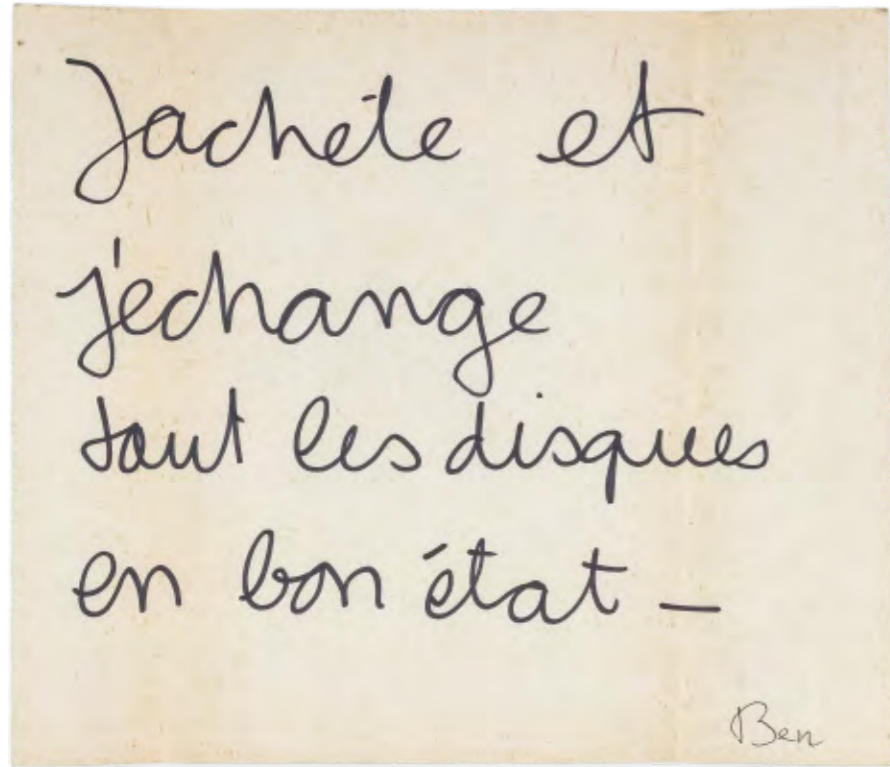 Jachéte et
j'echange
tout les disques
en bon état _
Ben